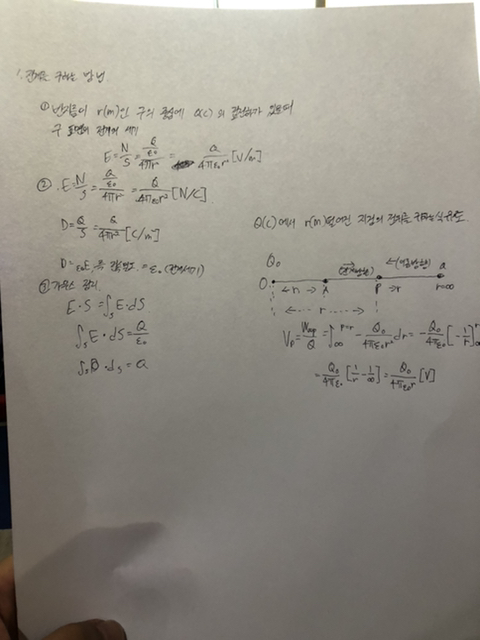 1. 전계를 구하는 방법.
① 반지름이 r(m)인 구의 중심에 Q(C)의 점전하가 있을때
구 표면의 전계의 세기
E = N/S = (Q/ε₀)/4πr² = Q/4πε₀r² [V/m]
② E = N/S = (Q/ε₀)/4πr² = Q/4πε₀r² [N/C]
D = Q/S = Q/4πr² [C/m]
D = ε₀E, 즉 = ε₀ (전계세기)
③ 가우스 정리
E · S = ∫ₛ E · dS
∫ₛ E · dS = Q/ε₀
∫ₛ D · ds = Q
Q(C)에서 r(m) 떨어진 지점의 전위를 구하는 식 유도
Q₀
O A P r=∞
← r →
← r →
V_P = W∞p/Q = ∫∞ − Q₀/4πε₀r² dr = − Q₀/4πε₀ [−1/r]
= Q₀/4πε₀ [1/r − 1/∞] = Q₀/4πε₀r [V]